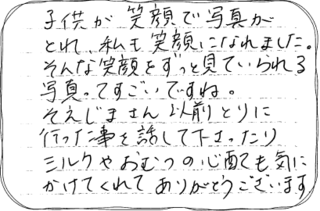 子供が笑顔で写真が
とれ、私も笑顔になれました。
そんな笑顔をずっと見ていられる
写真ってすごいですね。
そえじまさん以前とりに
行った事を話して下さったり
ミルクやおむつの心配も気に
かけてくれてありがとうございます